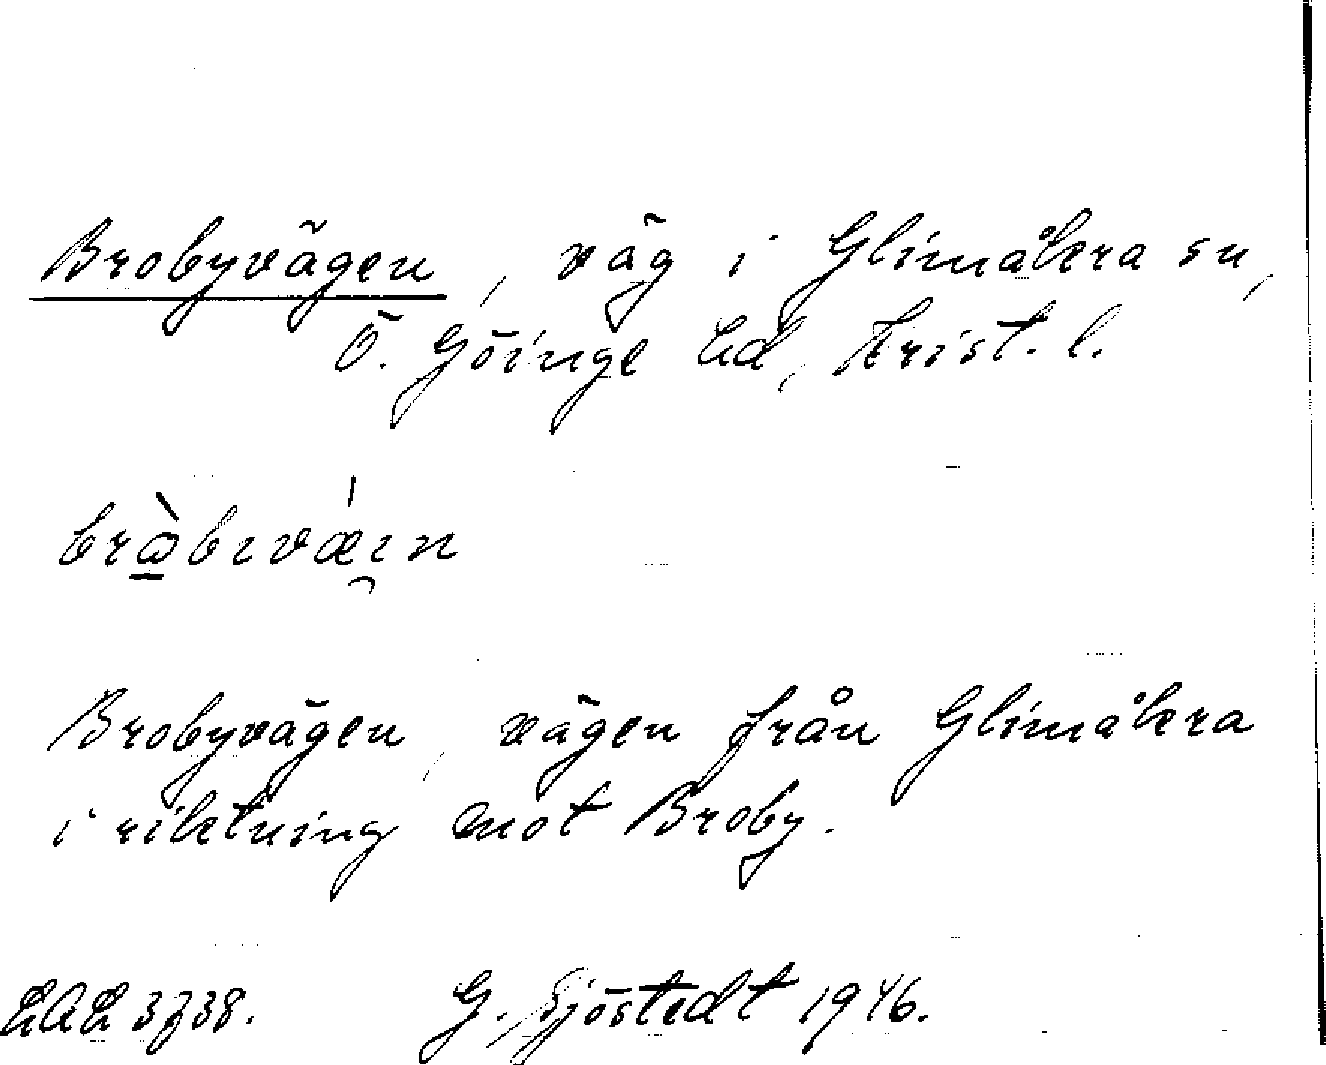 Brobyvägen, väg i Glimåkra sn,
Ö. Göinge hd, Krist. l.
bràbıvǽın
Brobyvägen, vägen från Glimåkra
i riktning mot Broby.
LAL 3738. G. Sjöstedt 1946.